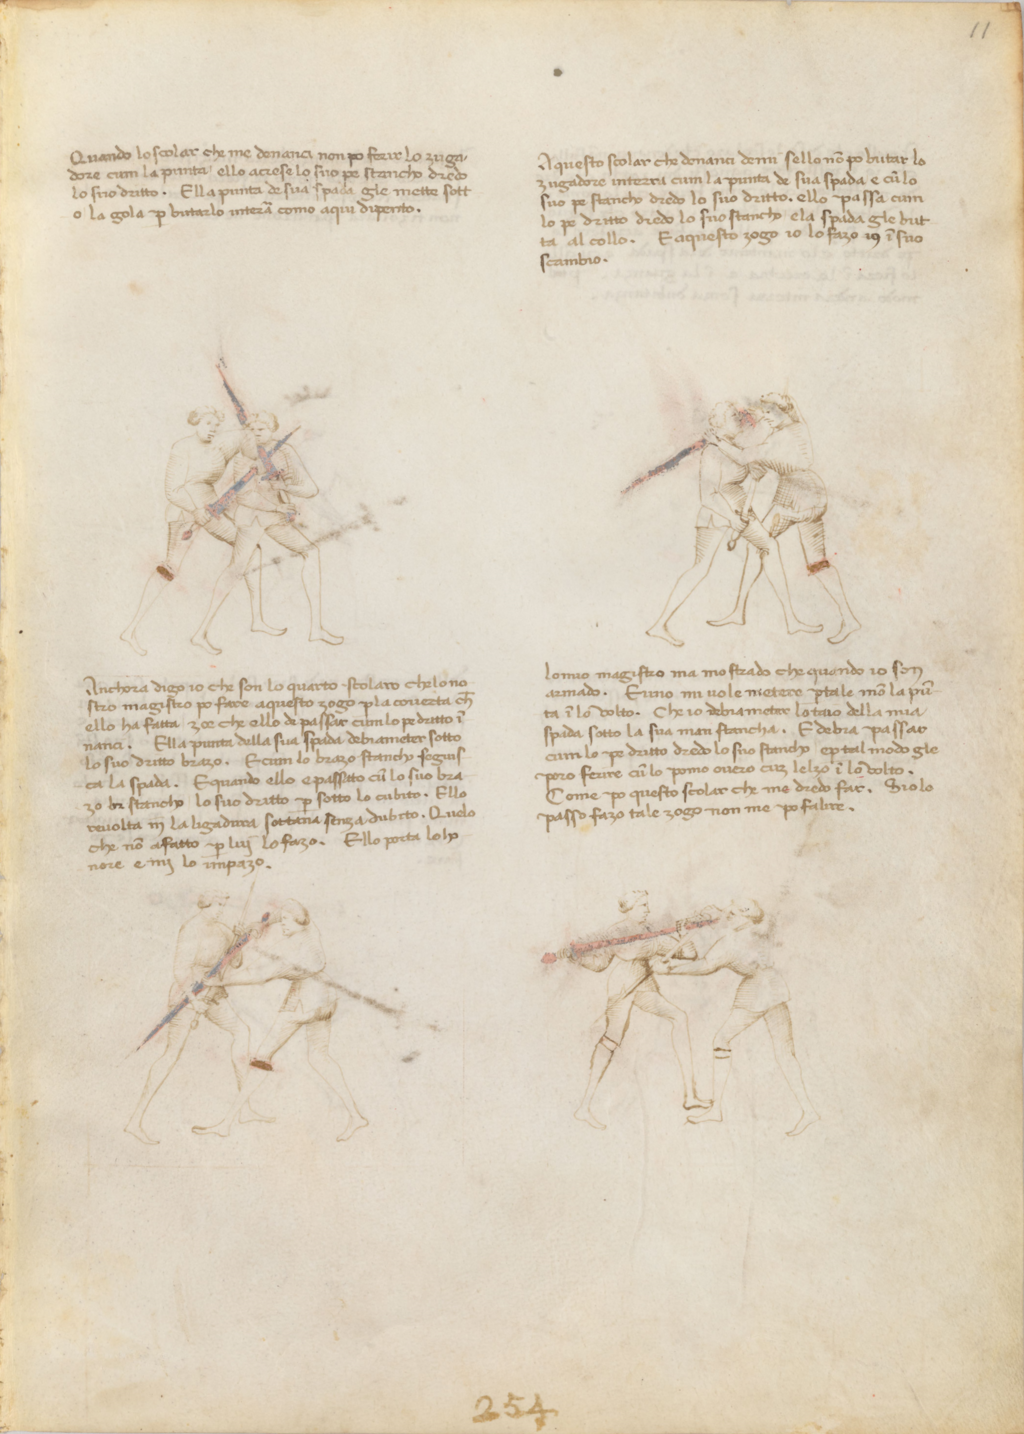 11
Quando lo scolar che me denanci non po ferir lo zuga-
dore cum la punta ello acrese lo suo pe stancho dredo
lo suo dritto. Ella punta de sua spada gle mette sott
o la gola p butarlo in terā como aqui dipento.
Aquesto scolar che denanci demi sello nō po butar lo
zugadore in terra cum la punta de sua spada e cū lo
suo pe stancho dredo lo suo dritto. ello passa cum
lo pe dritto dredo lo suo stancho e la spada gle but
ta al collo. E aquesto zogo io lo fazo in suo
scambio.
Anchora digo io che son lo quarto scolaro che lo no
stro magistro po fare aquesto zogo p la coverta ch̄
ello ha fatta zoe che ello de passar cum lo pe dritto ī
nanci. Ella punta della sua spada debia meter sotto
lo suo dritto brazo. E cum lo brazo stancho seguis
ca la spada. E quando ello e passato cū lo suo bra
zo stancho lo suo dritto p sotto lo cubito. Ello
revolta in la ligadura sottana senza dubito. Quelo
che nō a fatto p luj lo fazo. Ello porta lo ho
nore e mi lo impazo.
Lo mio magistro ma mostrado che quando io son
armado. E uno mi vole metere p tale mō la pū
ta ī lo volto. Che io debia meter lo taio della mia
spada sotto la sua man stancha. E debia passar
cum lo pe dritto dredo lo suo stancho e p tal modo gle
poro ferire cū lo pomo overo cuz lelzo ī lo volto.
Come po questo scolar che me dredo far. Si o lo
passo fazo tale zogo non me po falire.
254